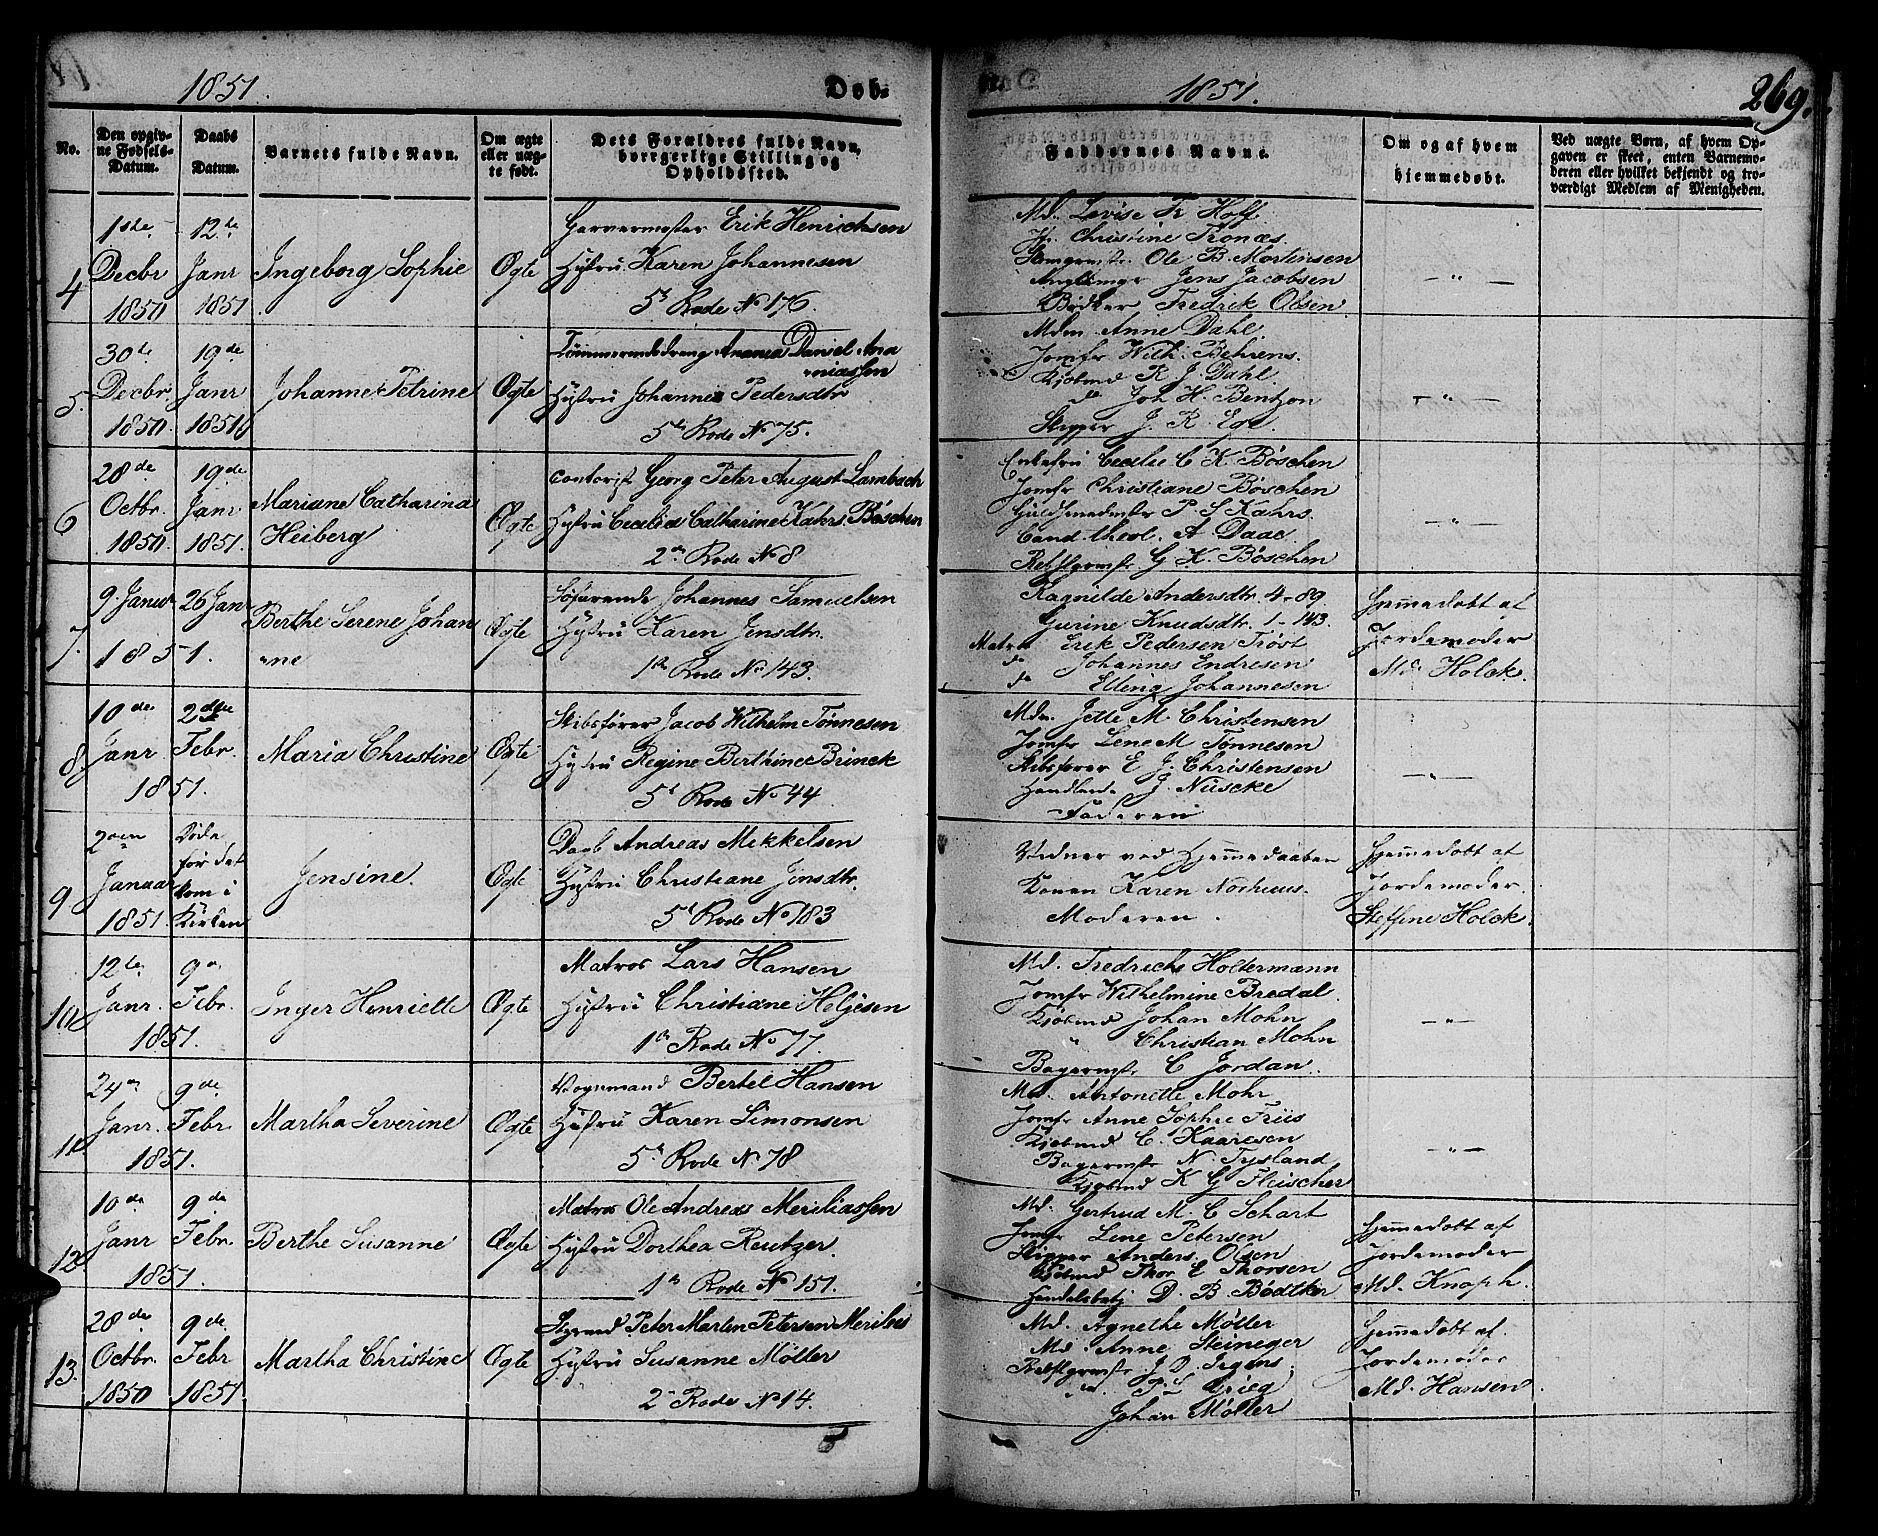 1851.
Døb-
1851.
269.
No.
Den opgiv-
ne Fødsels-
Datum.
Daabs
Datum.
Barnets fulde Navn.
Om ægte
eller uæg-
te født.
Dets Forældres fulde Navn,
borrgerlige Stilling og
Opholdssted.
Faddernes Navne.
Om og af hvem
hjemmedøbt.
Ved uægte Børn, af hvem Op-
gaven er skeet, enten Barnemo-
deren eller hvilket bekjendt og tro-
værdigt Medlem af Menigheden.
4
1ste
Decbr
1850
12te
Janr
1851
Ingeborg Sophie
Ægte
Garvermester Erik Henrichsen
Hustru Karen Johannesen
5t Rode No 176.
Md. Lovise Fr Hoff
Jfr. Christine Tronæs.
Ole B. Mortensen
Jens Jacobsen
Bødker Fredrik Olsen
— " —
5.
30te
Decbr
1850
19de
Janr
1851
Johanne Petrine
Ægte
Tømmermandsdreng Anania Daniel Ana
niassen
Hustru Johanne Pedersdtr
5te Rode No 75.
Mdm. Anne Dahl
Jomfr Wilh. Behrens.
Kjøbmd R J. Dahl.
do Joh H. Bentzon
Skipper J. R. Ege.
— " —
6
28de
Octbr.
1850.
19de
Janr
1851.
Mariane Catharina
Heiberg
Ægte
Contorist Georg Peter August Lambach
Hustru Cecelia Catharine Kahrs Bøschen
2en Rode No 8
Enkefru Cecelie C K. Bøschen
Jomfr Christiane Bøschen
Guldsmedmstr P. S Kahrs.
Cand. theol. A Daae.
Rebslgrmstr G K. Bøschen
— " —
7.
9. Januar
1851.
26 Janr
Berthe Serene Johan
ne
Ægte
Søfarende Johannes Samuelsen
Hustru Karen Jensdtr.
1te Rode No 143.
Ragnilde Andersdtr. 4-89
Gurine Knudsdtr. 1-143.
Matros Erik Pedersen Trøst
do Johannes Endresen
do Elling Johannesen
Hjemmedøbt af
Jordemoder
Md. Holck.
8.
10de
Janr
1851.
2den
Febr.
Maria Christine
Ægte
Skibsfører Jacob Wilhelm Tønnesen
Hustru Regine Berthine Brinck
5t Rode No 44
Mdm. Jette M. Christensen
Jomfr Lene M Tønnesen
Skibsfører E J. Christensen
Handlende J. Nüscke
Faderen
— " —
9
2den
Januar
1851.
Døde
før det
kom i
Kirken
Jensine.
Ægte
Dagb Andreas Mekkelsen
Hustru Christiane Jensdtr.
5t Rode No 183
Vidner ved Hjemmedaaben
Konen Karen Norhuus.
Moderen.
Hjemmedøbt af
Jordemoder.
Steffine Holck.
10
12te
Janr.
1851.
9de
Febr.
Inger Henriette
Ægte
Matros Lars Hansen
Hustru Christiane Heljesen
1te Rode No 77.
Md. Fredrich Holtermann
Jomfr Wilhelmine Bredal.
Kjøbmd Johan Mohn
" Christian Mohn
Bagermstr C Jordan.
— " —
11
24de
Janr.
1851.
9de
Febr
Martha Severine
Ægte
Vognmand Bertel Hansen
Hustru Karen Simonsen
5te Rode No 78
Md. Antonette Mohr
Jomfr Anne Sophie Friis
Kjøbmd C. Kaaresen
Bagermstr N. Tysland
Kjøbmd K G Fleischer
— " —
12
10de
Janr
1851.
9de
Febr.
Berthe Susanne
Ægte
Matros Ole Andreas Meriliassen
Hustru Dorthea Reutzer.
1te Rode No 151.
Md. Gertrud M. C Schart
Jomfr Lene Petersen
Skipper Anders Olsen
Kjøbmd Thor E Thorsen
Handelsbetj D. B. Bødtker
Hjemmedøbt af
Jordemoder
Md. Knoph.
13.
28de
Octbr.
1850
9de
Febr
1851.
Martha Christine
Ægte
Styrmd Peter Marten Petersen Merilies
Hustru Susanne Møller
2n Rode No 14.
Md. Agnethe Møller
Md. Anne Steineger
Rebslgrmstr J. D. Irgens
do P. L Grieg
Johan Møller
Hjemmedøbt af.
Jordemoder
Md. Hansen.